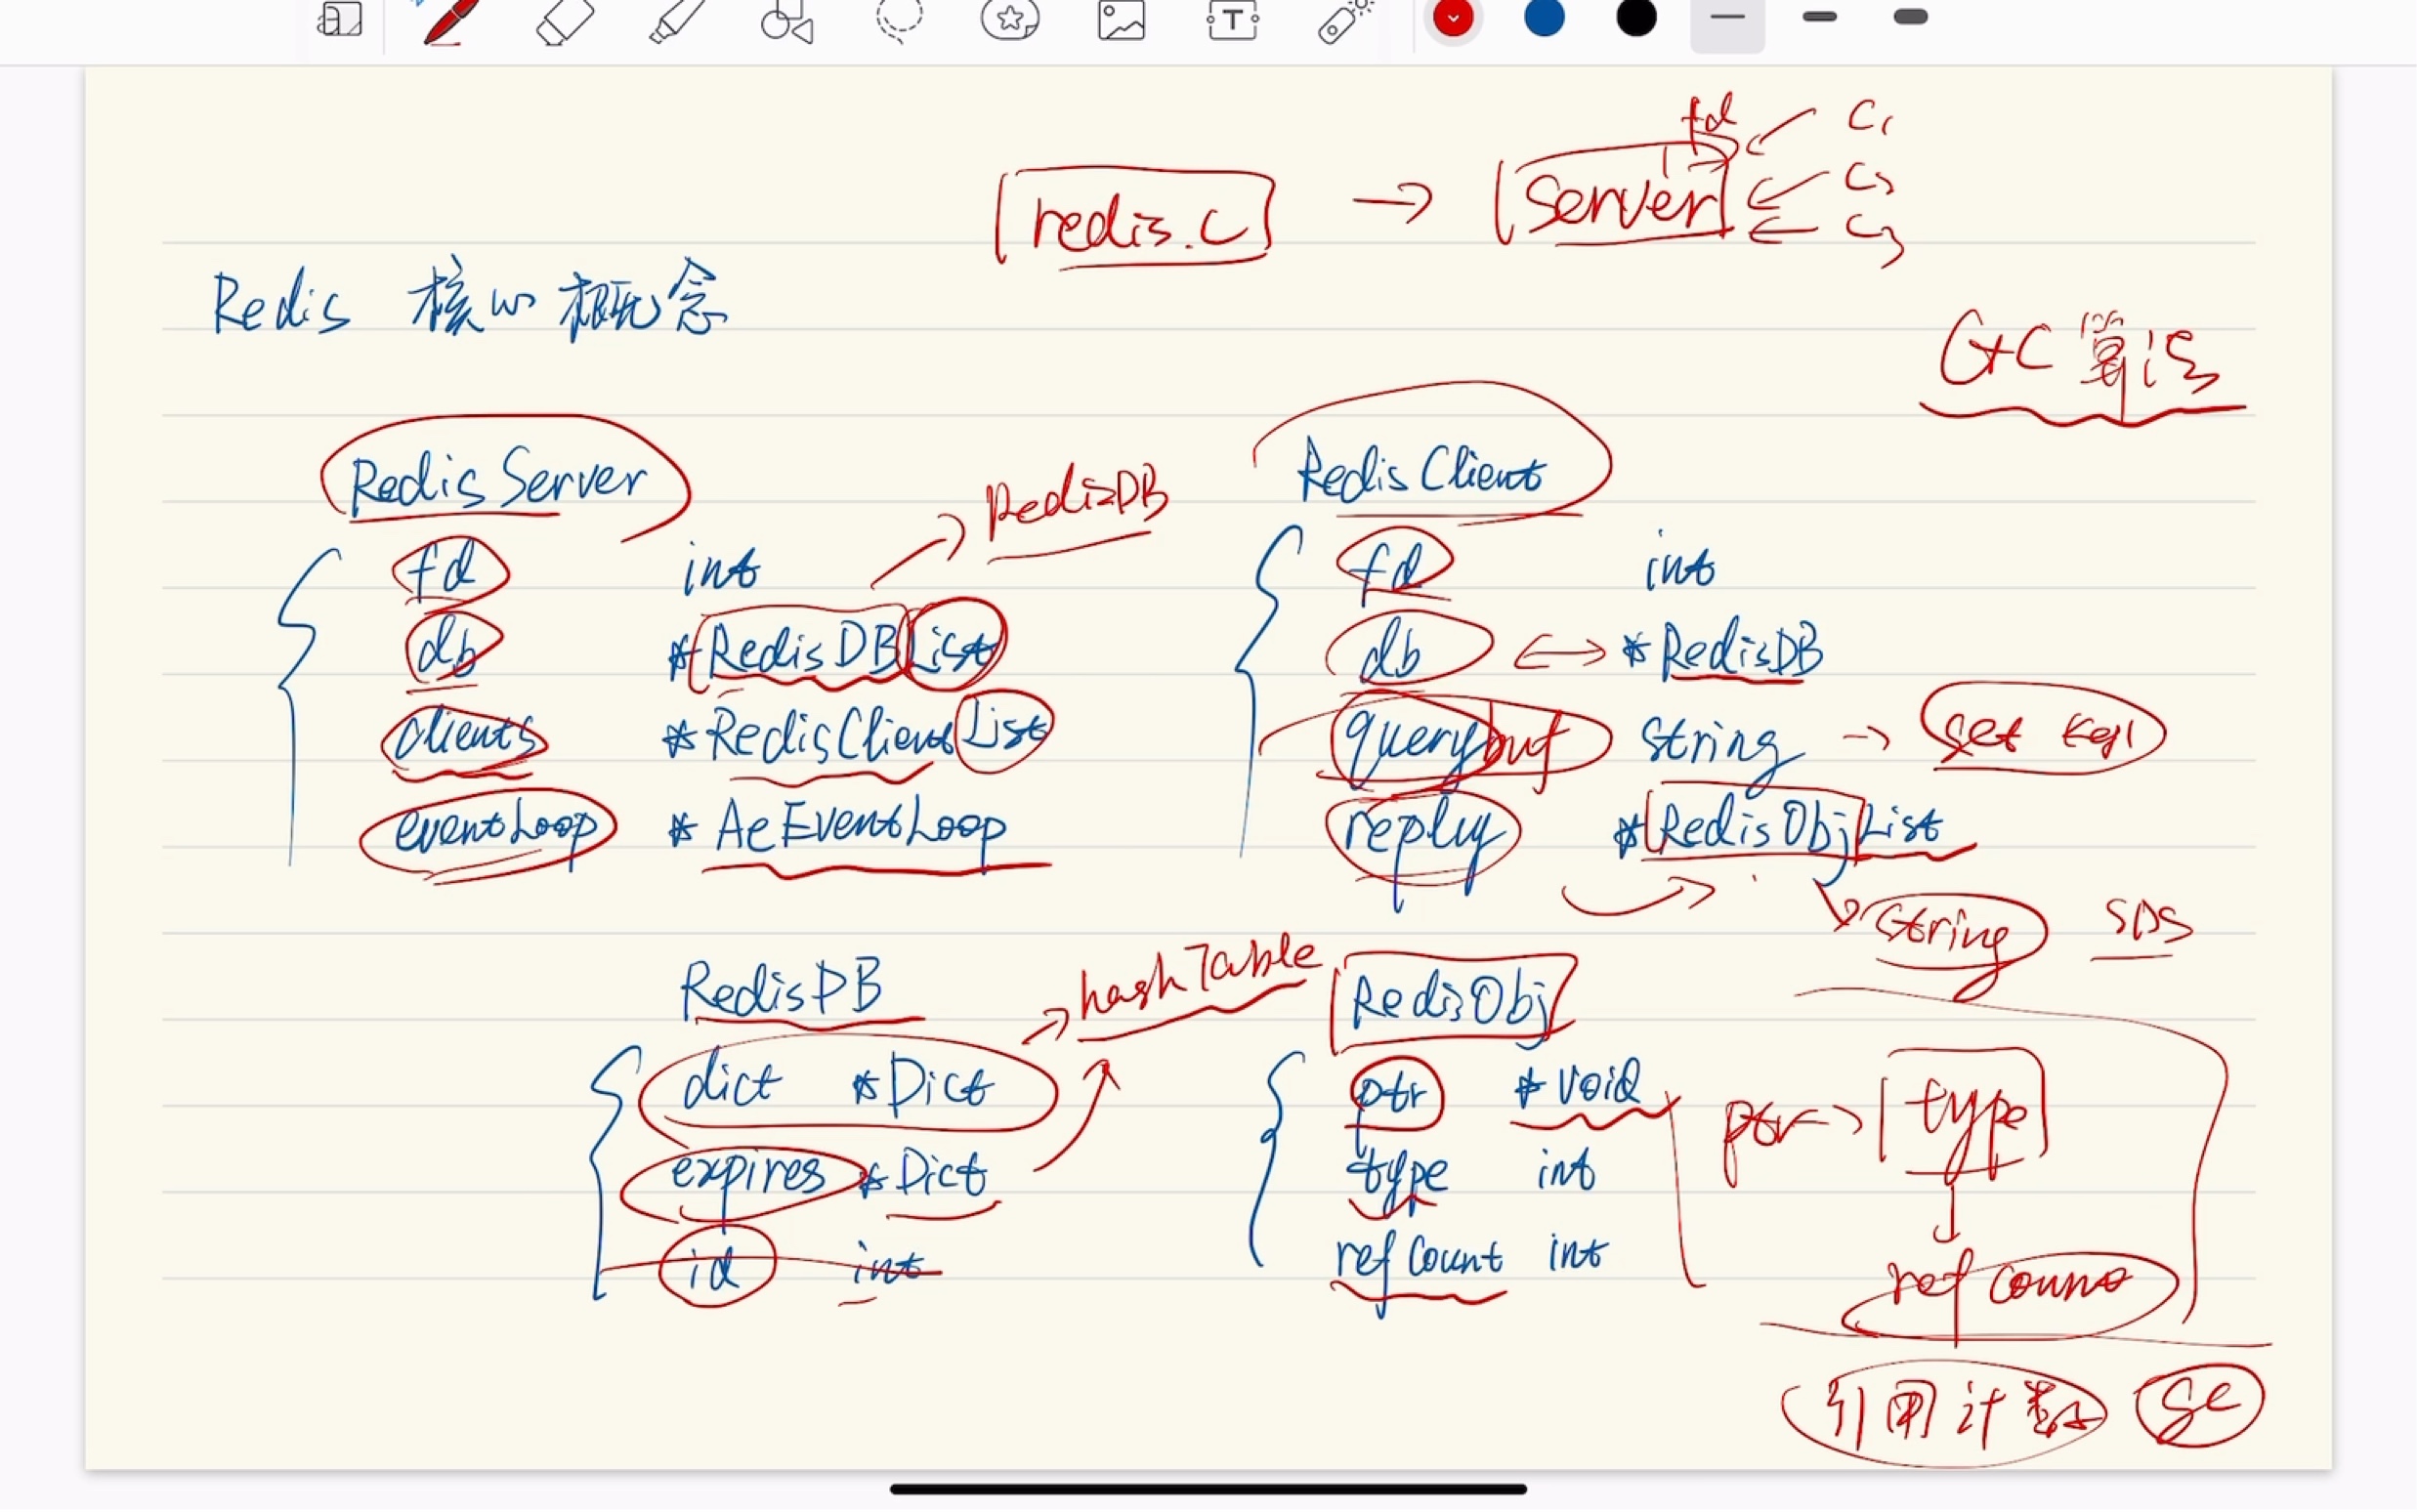 fd C1
redis.c → server C2
C3
Redis 核心概念
GC 算法
Redis Server
RedisDB
Redis Client
fd int
db *RedisDBList
clients *RedisClientList
eventLoop *AeEventLoop
fd int
db ↔ *RedisDB
querybuf string →
reply *RedisObjList
string SDS
RedisDB
hashTable
dict *Dict
expires *Dict
id int
RedisObj
ptr *void
type int
refCount int
ptr → type
refCount
引用计数 gc